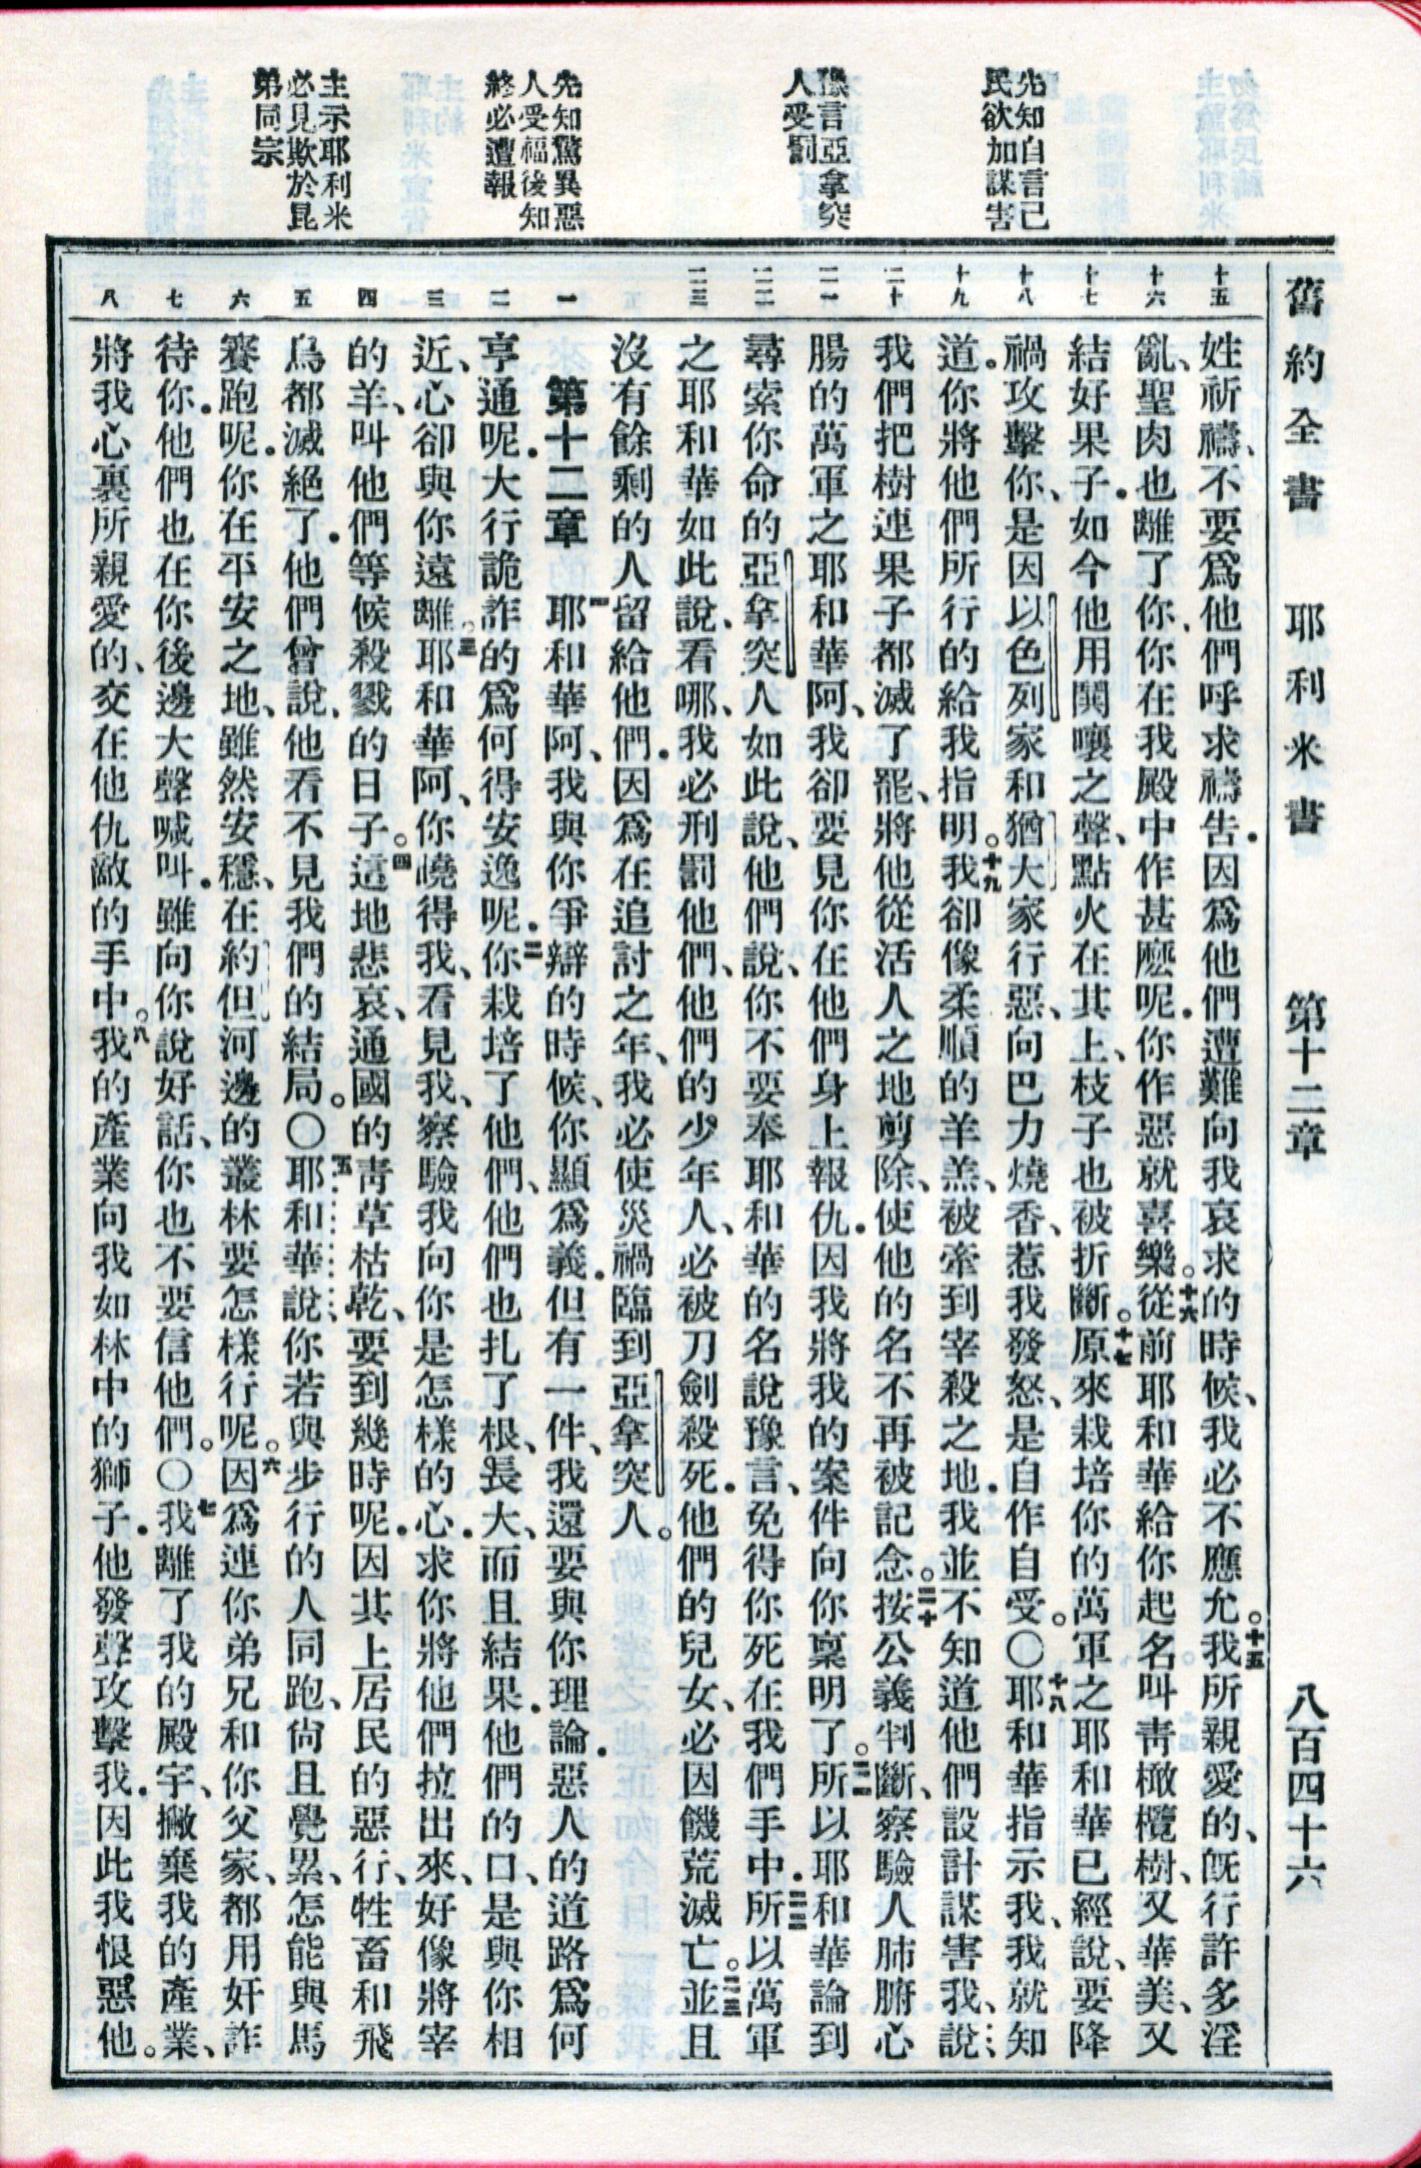 舊約全書 耶利米書 第十二章 八百四十六
先知自言己
民欲加謀害
豫言亞拿突
人受罰
先知驚異惡
人受福後知
終必遭報
主示耶利米
必見欺於昆
弟同宗
十五 十六 十七 十八 十九 二十 二一 二二 二三 一 二 三 四 五 六 七 八
姓祈禱、不要爲他們呼求禱告.因爲他們遭難向我哀求的時候、我必不應允。十五我所親愛的、旣行許多淫
亂、聖肉也離了你、你在我殿中作甚麽呢.你作惡就喜樂。十六從前耶和華給你起名叫靑橄欖樹、又華美、又
結好果子.如今他用鬨嚷之聲、點火在其上、枝子也被折斷。十七原來栽培你的萬軍之耶和華已經說、要降
禍攻擊你、是因以色列家和猶大家行惡、向巴力燒香、惹我發怒、是自作自受。〇十八耶和華指示我、我就知
道.你將他們所行的給我指明。十九我卻像柔順的羊羔、被牽到宰殺之地.我並不知道他們設計謀害我、說、
我們把樹連果子都滅了罷、將他從活人之地剪除、使他的名不再被記念。二十按公義判斷、察驗人肺腑心
腸的萬軍之耶和華阿、我卻要見你在他們身上報仇.因我將我的案件向你稟明了。二一所以耶和華論到
尋索你命的亞拿突人如此說、他們說、你不要奉耶和華的名說豫言、免得你死在我們手中.二二所以萬軍
之耶和華如此說、看哪、我必刑罰他們、他們的少年人、必被刀劍殺死.他們的兒女、必因饑荒滅亡。二三並且
沒有餘剩的人留給他們.因爲在追討之年、我必使災禍臨到亞拿突人。
第十二章 一耶和華阿、我與你爭辯的時候、你顯爲義.但有一件、我還要與你理論.惡人的道路爲何
亨通呢.大行詭詐的爲何得安逸呢.二你栽培了他們、他們也扎了根、長大、而且結果.他們的口、是與你相
近、心卻與你遠離。三耶和華阿、你曉得我、看見我、察驗我向你是怎樣的心.求你將他們拉出來、好像將宰
的羊、叫他們等候殺戮的日子。四這地悲哀、通國的靑草枯乾、要到幾時呢.因其上居民的惡行、牲畜和飛
鳥都滅絕了.他們曾說、他看不見我們的結局。〇五耶和華說、你若與步行的人同跑、尙且覺累、怎能與馬
賽跑呢.你在平安之地、雖然安穩、在約但河邊的叢林要怎樣行呢。六因爲連你弟兄和你父家、都用奸詐
待你.他們也在你後邊大聲喊叫.雖向你說好話、你也不要信他們。〇七我離了我的殿宇、撇棄我的產業、
將我心裏所親愛的、交在他仇敵的手中。八我的產業向我如林中的獅子.他發聲攻擊我.因此我恨惡他。